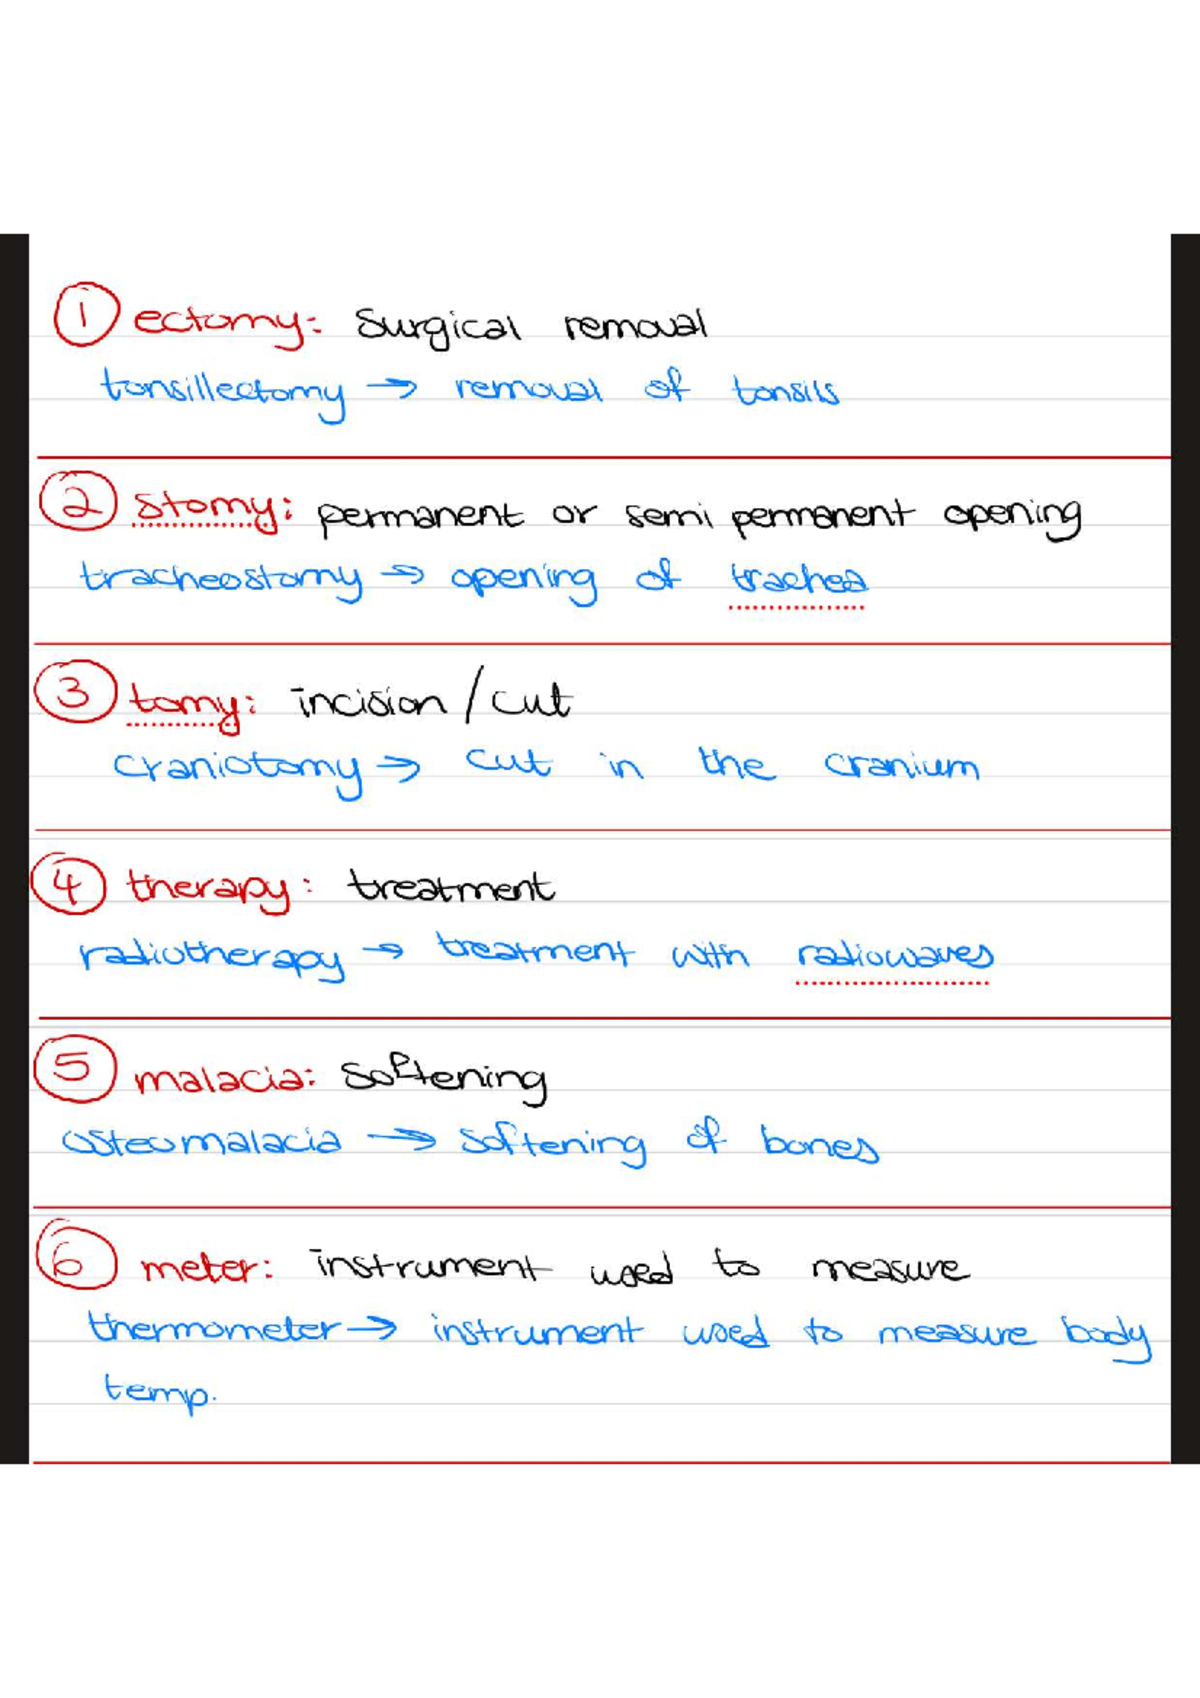 1 ectomy: Surgical removal
tonsillectomy → removal of tonsils
2 stomy: permanent or semi permanent opening
tracheostomy → opening of trachea
3 tomy: incision / cut
craniotomy → cut in the cranium
4 therapy: treatment
radiotherapy → treatment with radiowaves
5 malacia: Softening
osteomalacia → softening of bones
6 meter: instrument used to measure
thermometer → instrument used to measure body
temp.